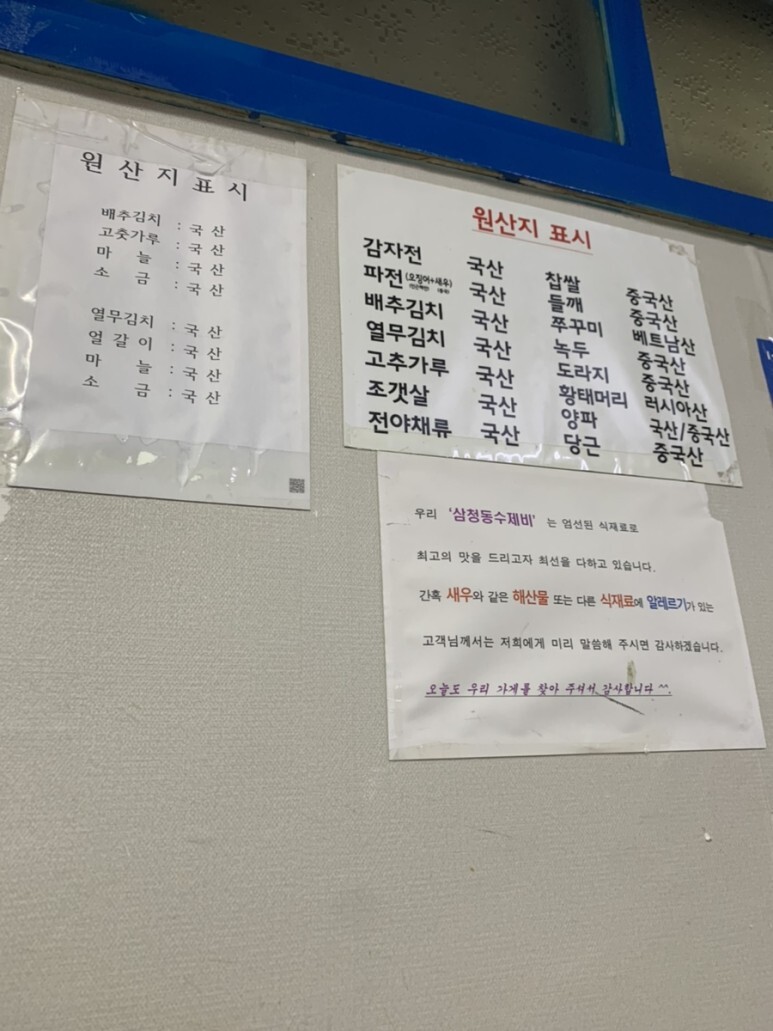 원산지표시
배추김치 : 국산
고춧가루 : 국산
마늘 : 국산
소금 : 국산
열무김치 : 국산
얼갈이 : 국산
마늘 : 국산
소금 : 국산
원산지 표시
감자전 국산
파전(오징어+새우) 국산
배추김치 국산
열무김치 국산
고추가루 국산
조갯살 국산
전야채류 국산
찹쌀 중국산
들깨 중국산
쭈꾸미 베트남산
녹두 중국산
도라지 중국산
황태머리 러시아산
양파 국산/중국산
당근 중국산
우리 '삼청동수제비' 는 엄선된 식재료로
최고의 맛을 드리고자 최선을 다하고 있습니다.
간혹 새우와 같은 해산물 또는 다른 식재료에 알레르기가 있는
고객님께서는 저희에게 미리 말씀해 주시면 감사하겠습니다.
오늘도 우리 가게를 찾아 주셔서 감사합니다 ^^.